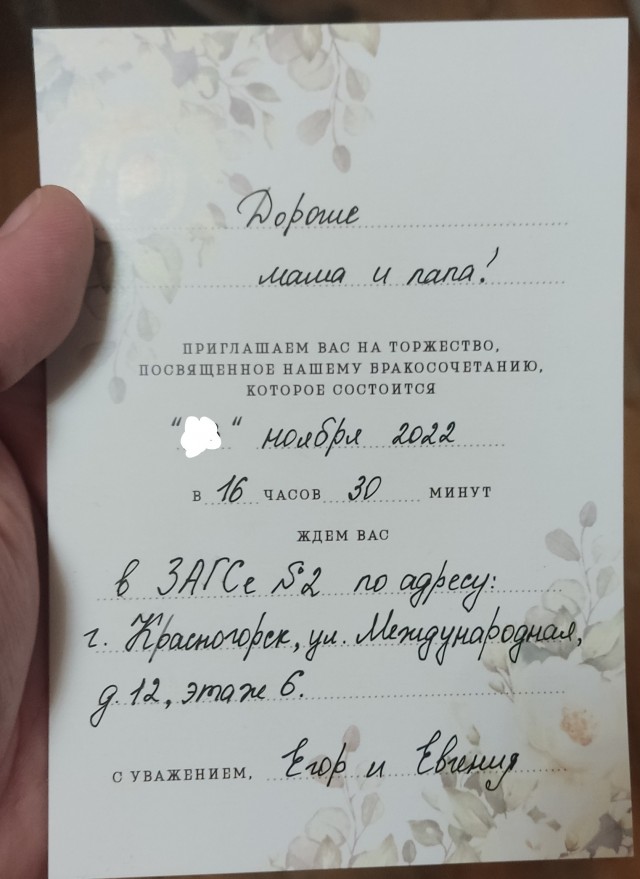 Дорогие
мама и папа!
ПРИГЛАШАЕМ ВАС НА ТОРЖЕСТВО,
ПОСВЯЩЕННОЕ НАШЕМУ БРАКОСОЧЕТАНИЮ,
КОТОРОЕ СОСТОИТСЯ
" " ноября 2022
В 16 ЧАСОВ 30 МИНУТ
ЖДЕМ ВАС
в ЗАГСе №2 по адресу:
г. Красногорск, ул. Международная,
д. 12, этаж 6.
С УВАЖЕНИЕМ, Егор и Евгения